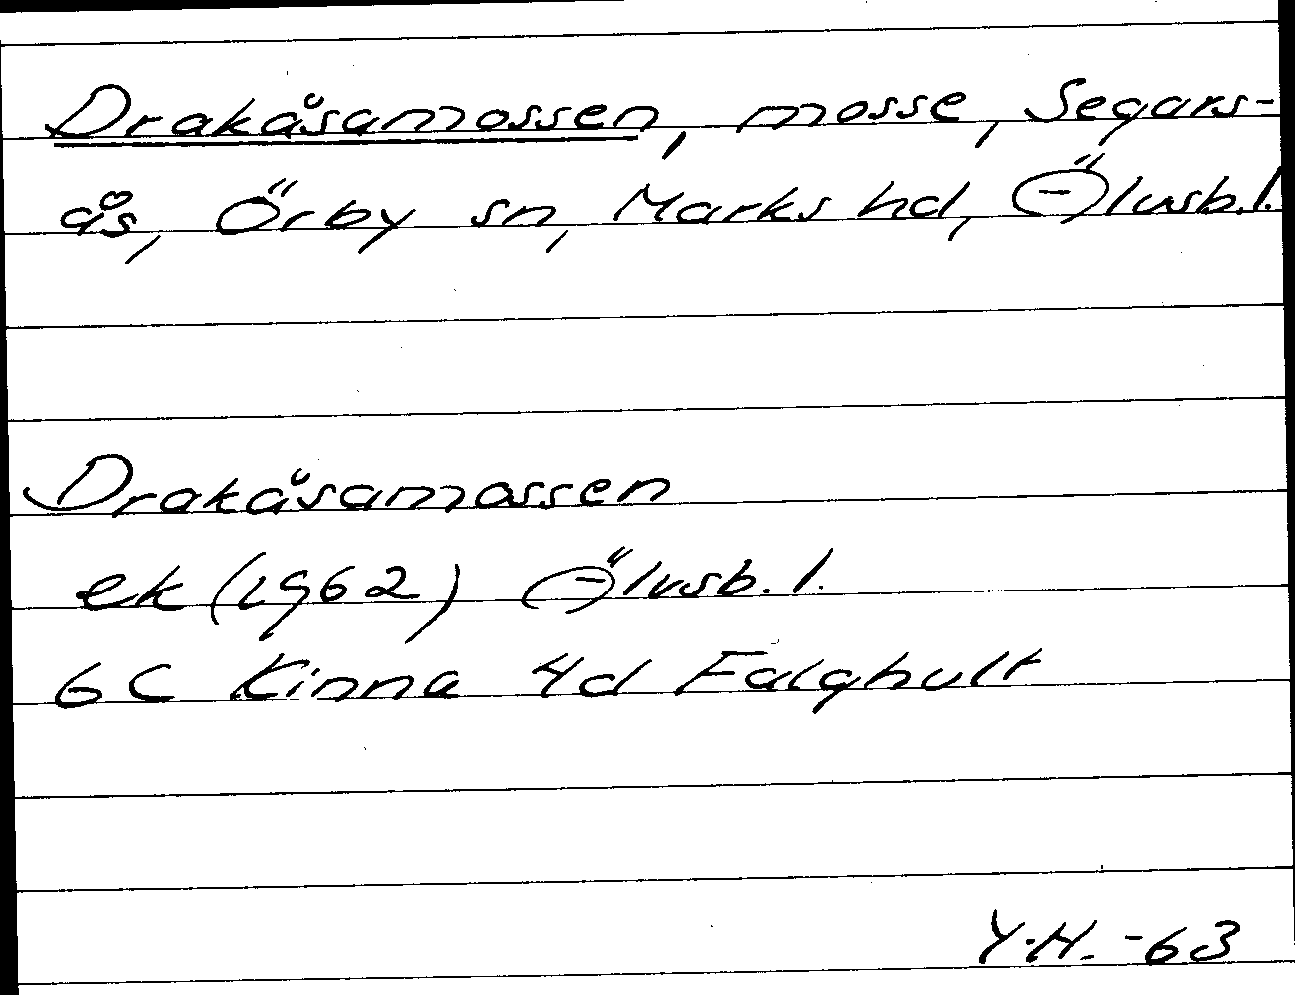 Drakåsamossen, mosse, Segars-
ås, Örby sn, Marks hd, Älvsb.l.
Drakåsamossen
ek (1962) Älvsb. l.
6C Kinna 4d Falghult
Y.H. -63